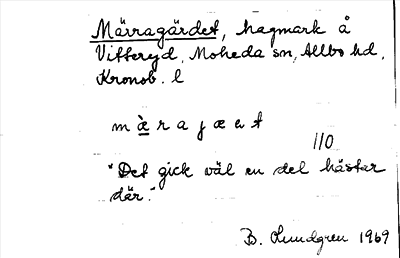 Märragärdet, hagmark å
Vitteryd, Moheda sn, Allbo hd,
Kronob. l
m æ̀ r a j æ ṭ
110
"Det gick väl en del hästar
där."
B. Lundgren 1969